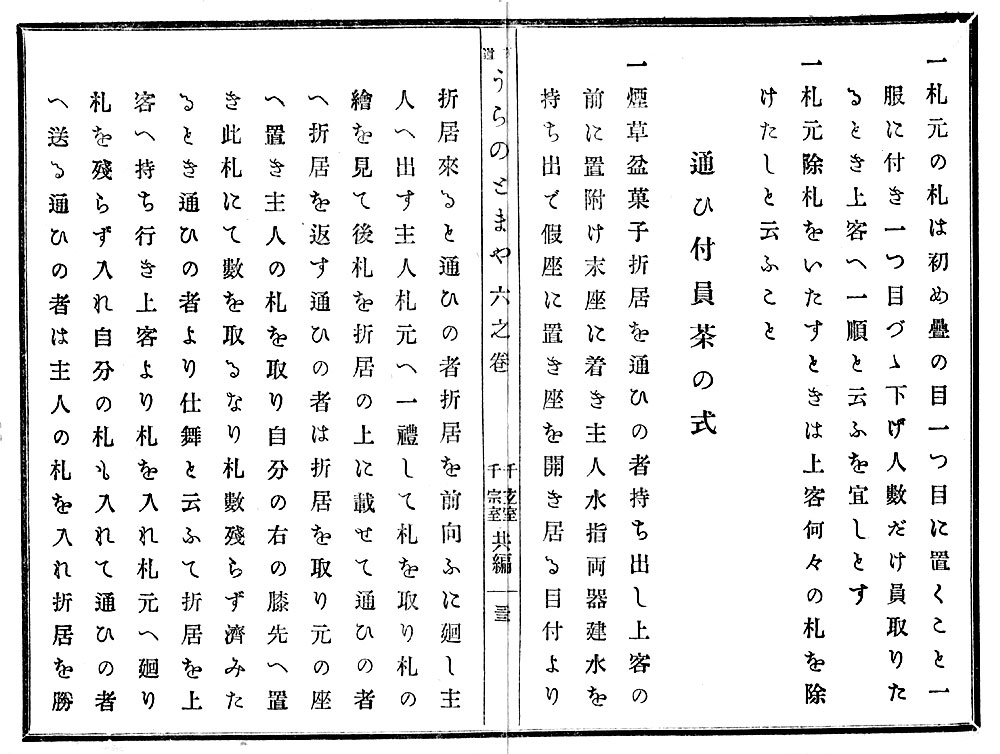 一札元の札は初め疊の目一つ目に置くこと一
服に付き一つ目づゝ下げ人數だけ員取りた
るとき上客へ一順と云ふを宜しとす
一札元除札をいたすときは上客何々の札を除
けたしと云ふこと
通ひ付員茶の式
一煙草盆菓子折居を通ひの者持ち出し上客の
前に置附け末座に着き主人水指両器建水を
持ち出で假座に置き座を開き居る目付より
うらのとまや 六之卷
千宗室
共編
折居來ると通ひの者折居を前向ふに廻し主
人へ出す主人札元へ一禮して札を取り札の
繪を見て後札を折居の上に載せて通ひの者
へ折居を返す通ひの者は折居を取り元の座
へ置き主人の札を取り自分の右の膝先へ置
き此札にて數を取るなり札數殘らず濟みた
るとき通ひの者より仕舞と云ふて折居を上
客へ持ち行き上客より札を入れ札元へ廻り
札を殘らず入れ自分の札も入れて通ひの者
へ送る通ひの者は主人の札を入れ折居を勝